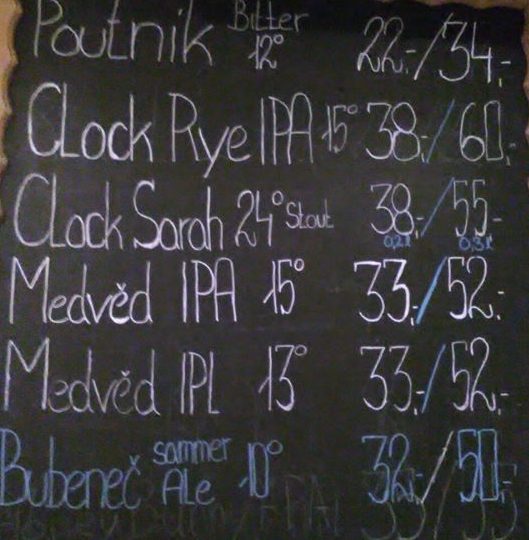 Poutnik Bitter 12° 22,-/34,-
CLock Rye IPA 15° 38,-/60,-
CLock Sarah 24° Stout 38,-/55,-
0,2l 0,3l
Medvěd IPA 15° 33,-/52,-
Medvěd IPL 13° 33,-/52,-
Bubeneč sommer Ale 10° 32,-/50,-